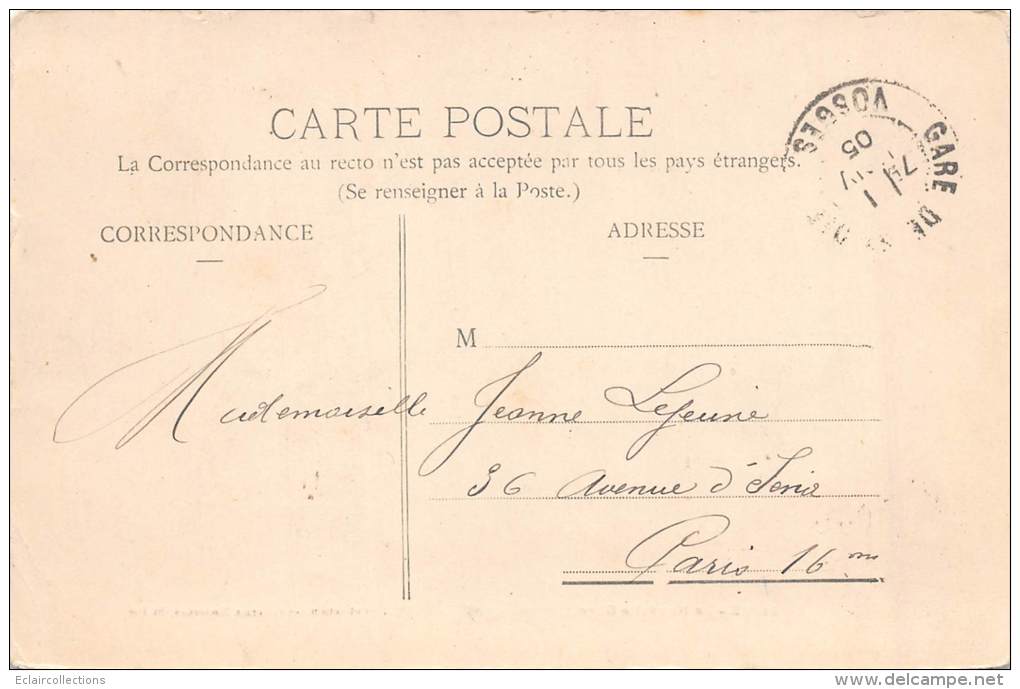 CARTE POSTALE
La Correspondance au recto n'est pas acceptée par tous les pays étrangers.
(Se renseigner à la Poste.)
GARE DE DIÉ
VOSGES
05
CORRESPONDANCE
ADRESSE
M
Mademoiselle Jeanne Lejeune
36 Avenue d'Iéna
Paris 16me
Eclaircollections
www.delcampe.net